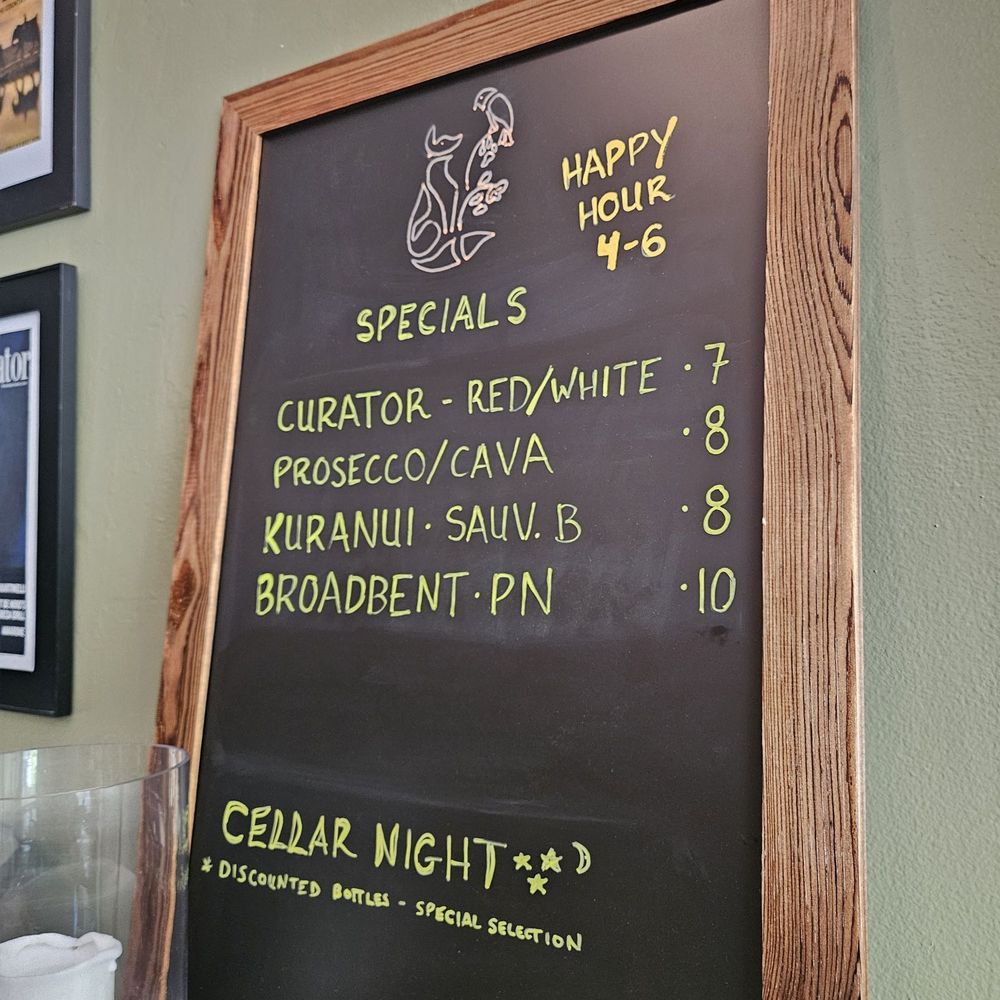 HAPPY
HOUR
4-6
SPECIALS
CURATOR - RED/WHITE · 7
PROSECCO/CAVA · 8
KURANUI · SAUV. B · 8
BROADBENT · PN · 10
CELLAR NIGHT
* DISCOUNTED BOTTLES - SPECIAL SELECTION
ator